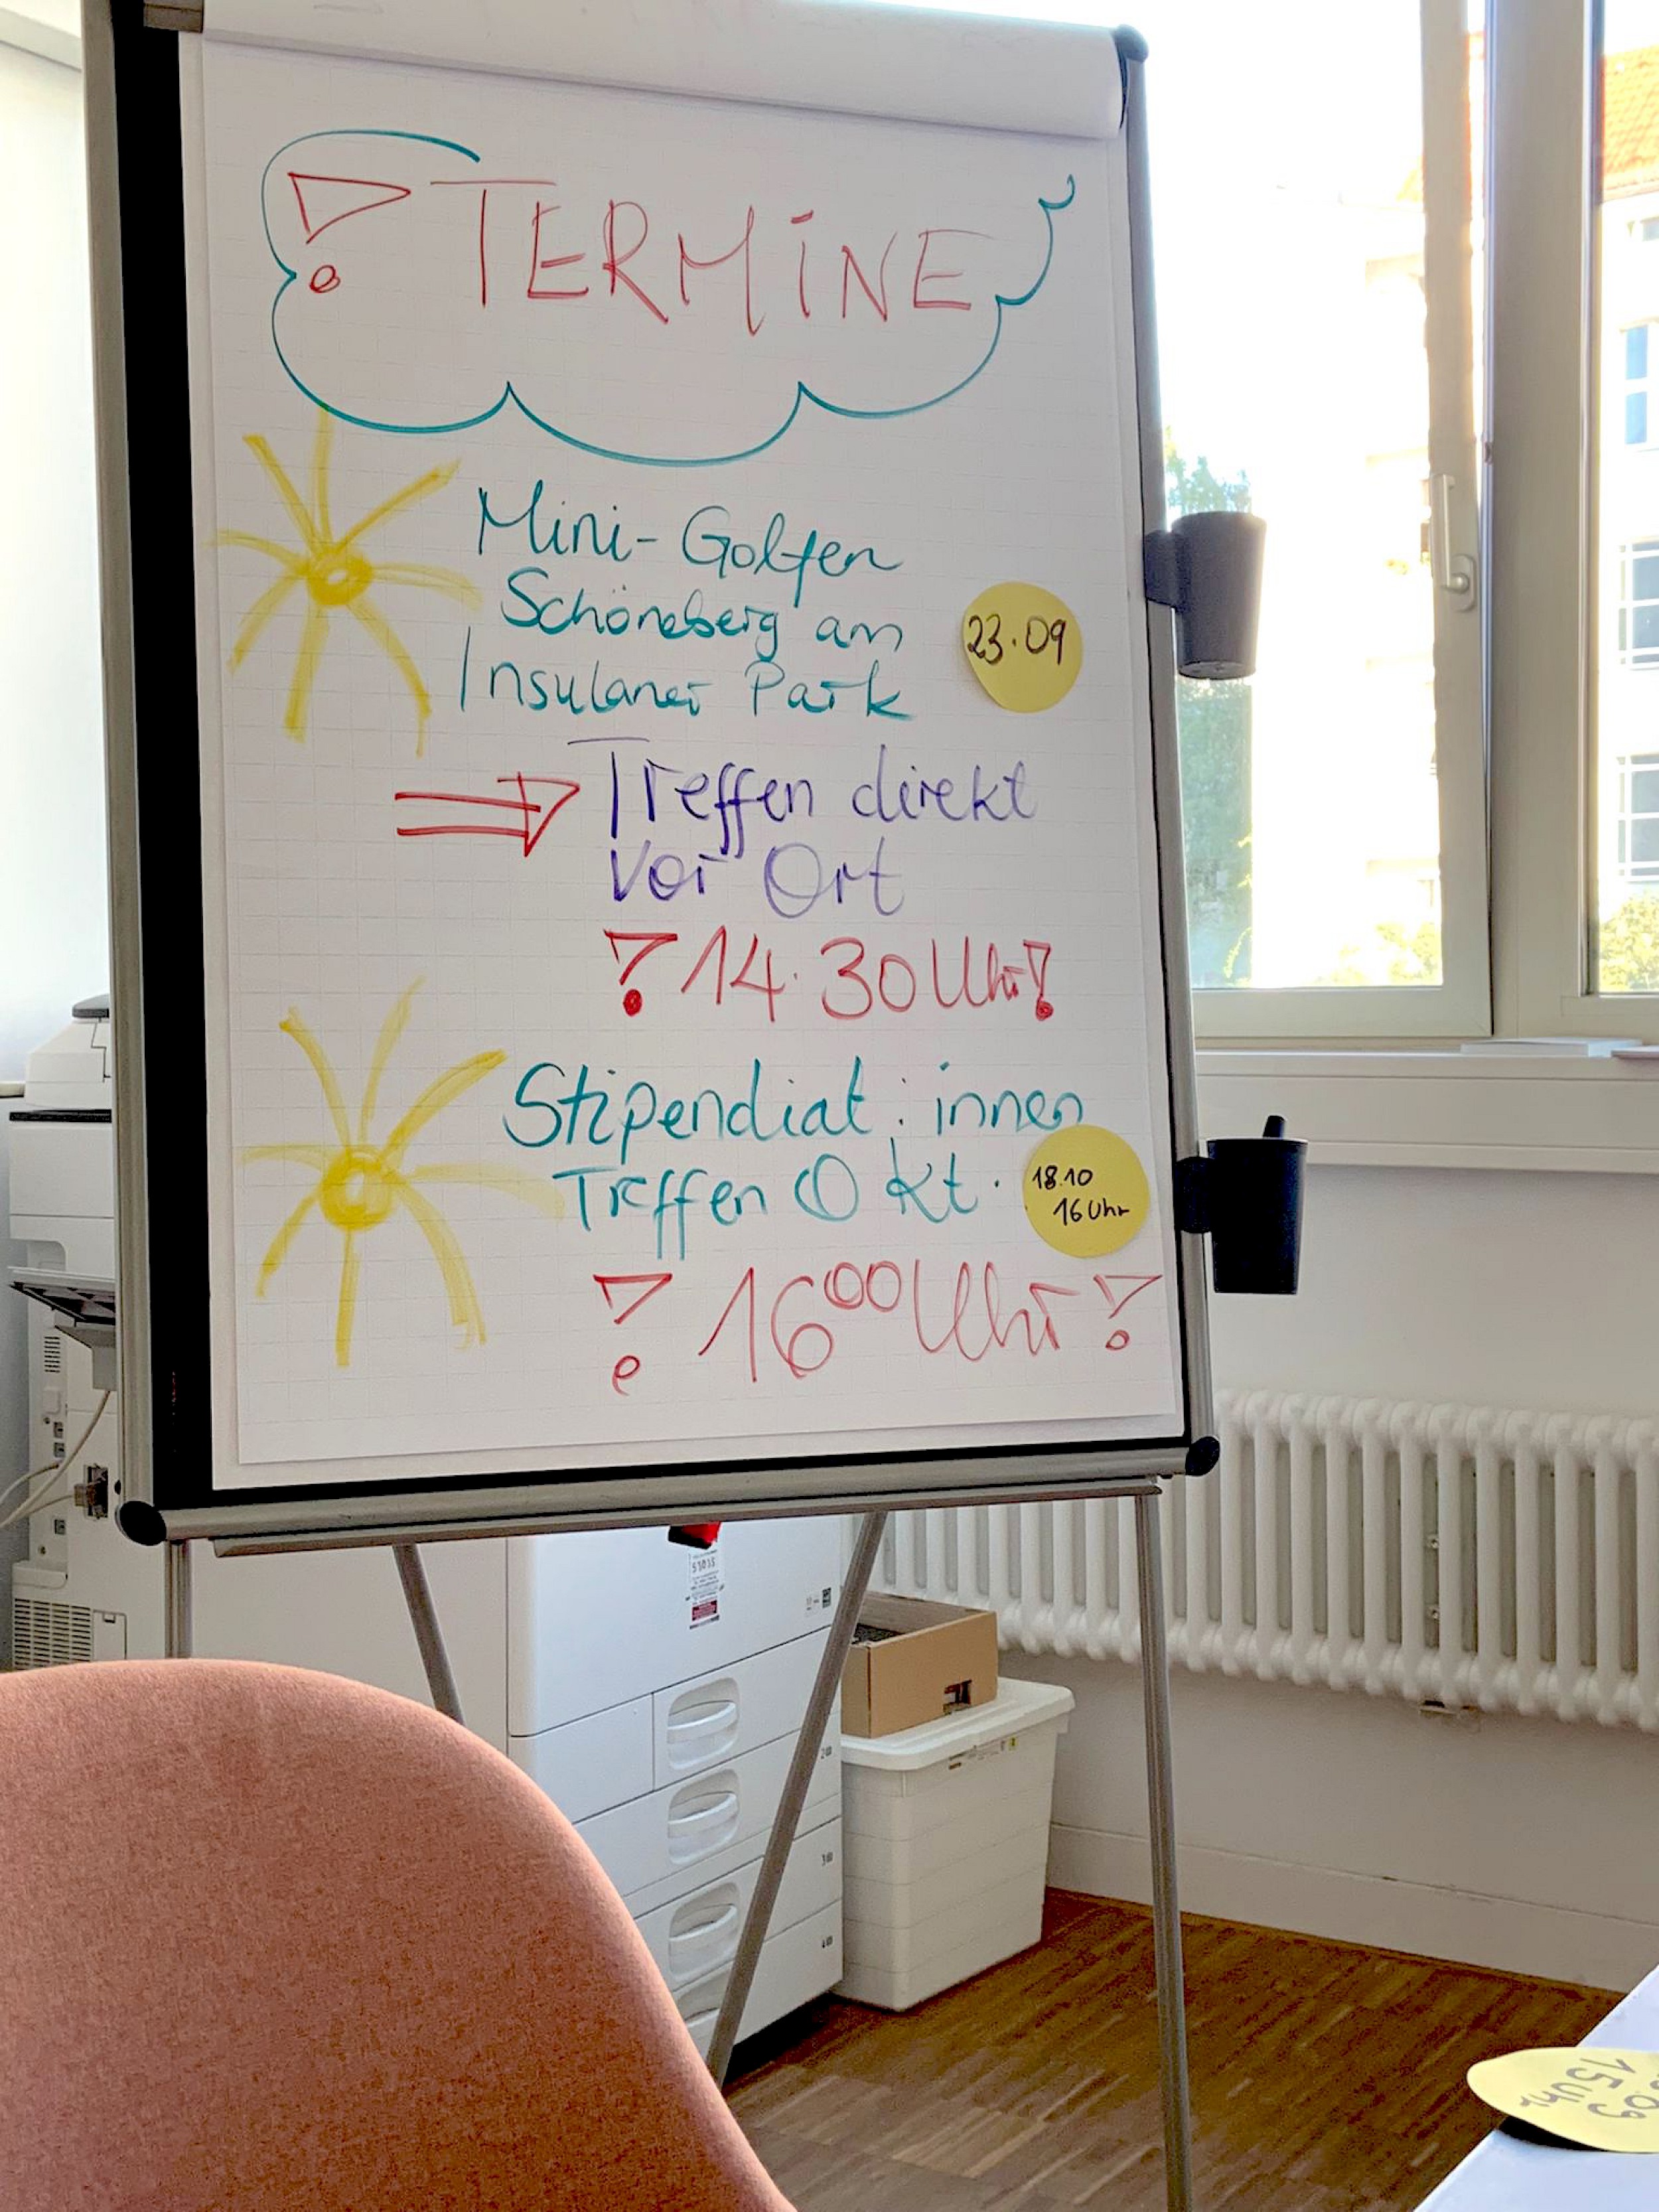 ! TERMINE
Mini-Golfen
Schöneberg am
Insulaner Park
23.09
⇒ Treffen direkt
vor Ort
! 14.30 Uhr !
Stipendiat:innen
Treffen Okt.
18.10
16 Uhr
! 16⁰⁰ Uhr !
15 Uhr